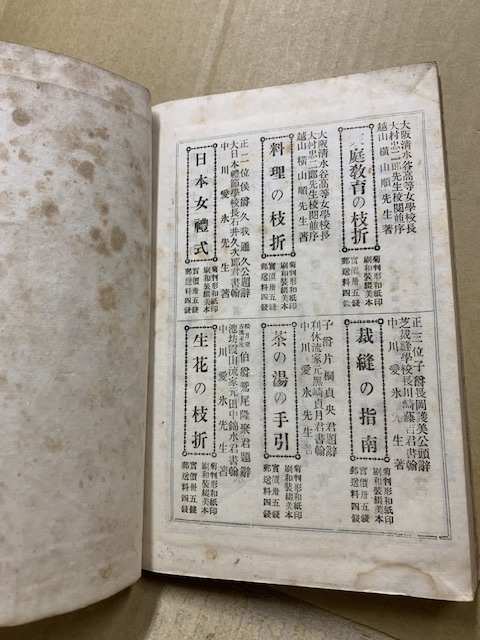 大阪清水谷高等女學校長
大村忠二郎先生校閲並序
越山橫山順先生著
庭教育の枝折
菊判形和紙印
刷和裝綴美本
實價卅五錢
郵送料四錢
大阪清水谷高等女學校長
大村忠二郎先生校閲並序
越山橫山順先生著
料理の枝折
菊判形和紙印
刷和裝綴美本
實價卅五錢
郵送料四錢
正二位侯爵久我通久公題辭
大日本禮節學校長石井久次郎君書翰
中川愛氷先生著
日本女禮式
菊判形和紙印
刷和裝綴美本
實價卅五錢
郵送料四錢
正三位子爵長岡護美公題辭
芝裁縫學校長川崎藤吉君書翰
中川愛氷先生著
裁縫の指南
菊判形和紙印
刷和裝綴美本
實價卅五錢
郵送料四錢
子爵片桐貞央君題辭
利休流家元黑崎貞月君書翰
中川愛氷先生著
茶の湯の手引
菊判形和紙印
刷和裝綴美本
實價卅五錢
郵送料四錢
松月堂
古流家元
伯爵鷲尾隆聚君題辭
池坊霞山流家元田中錦水君書翰
中川愛氷先生著
生花の枝折
菊判形和紙印
刷和裝綴美本
實價卅五錢
郵送料四錢